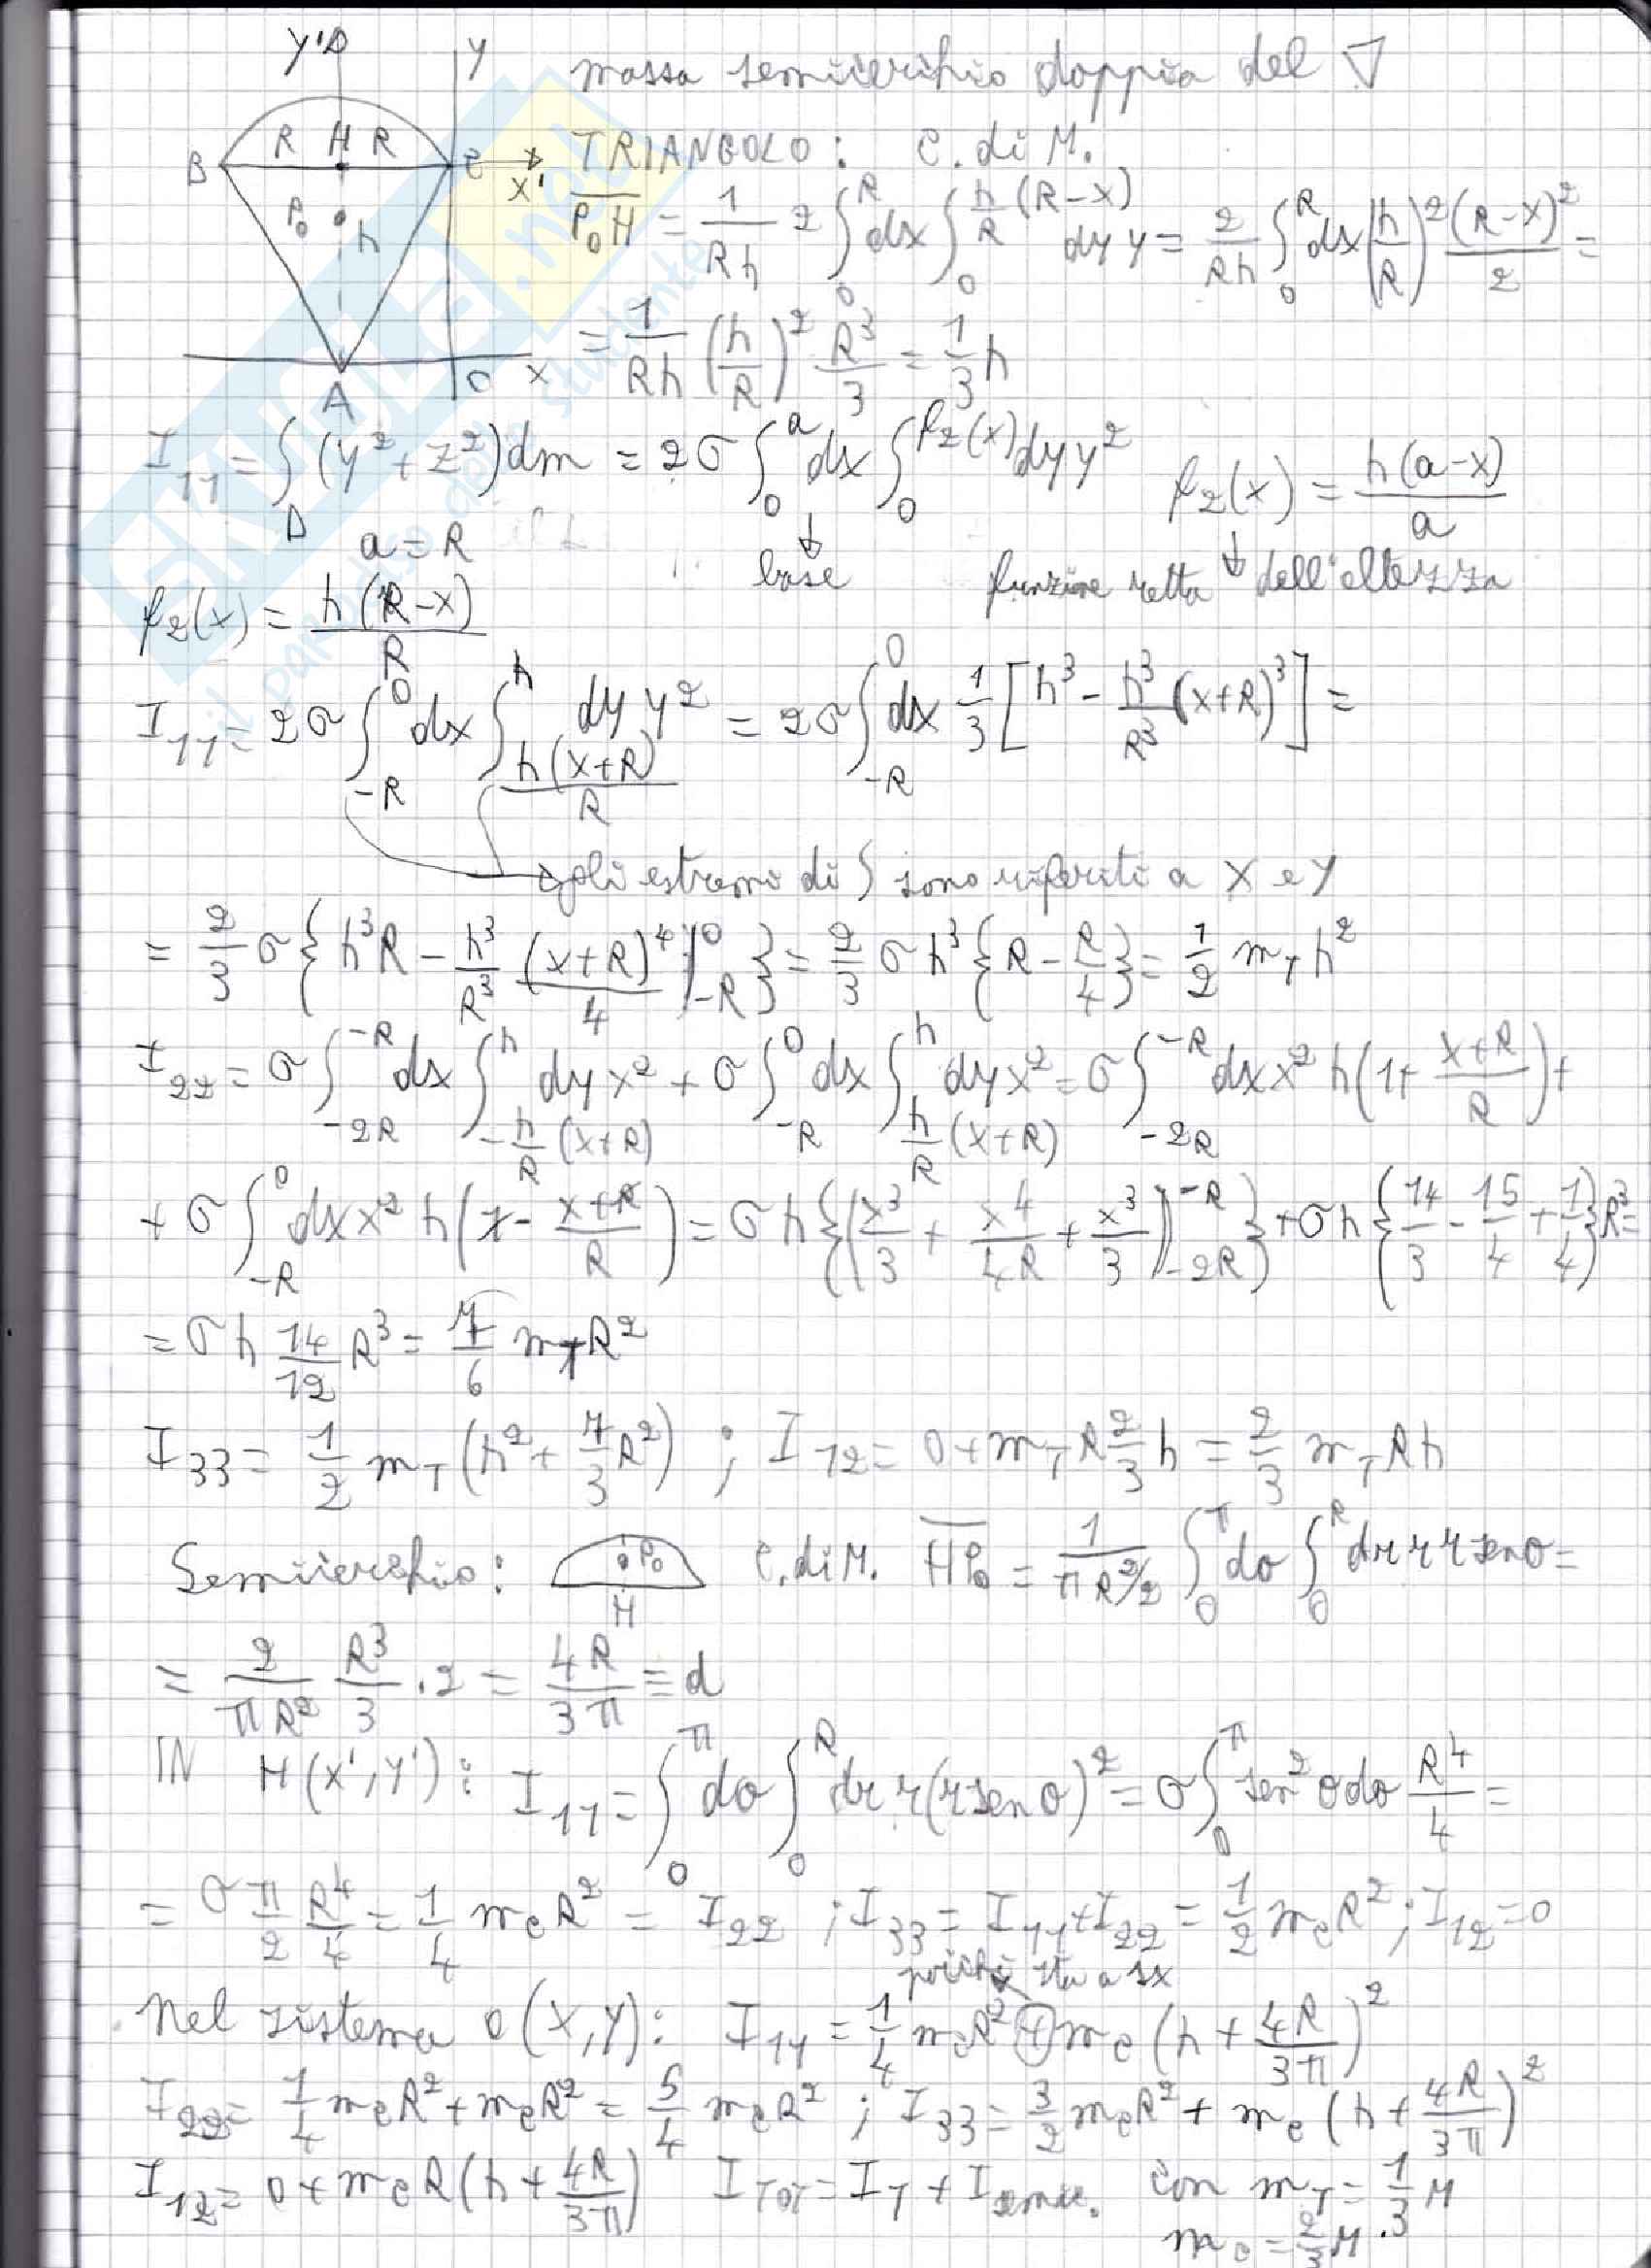 y'Δ y massa semicerchio doppia del ▽
B R H R C x' TRIANGOLO: C. di M.
P₀ h
P₀H = 1/(Rh) 2 ∫₀^R dx ∫₀^{h/R (R-x)} dy y = 2/(Rh) ∫₀^R dx (h/R)² (R-x)²/2 =
= 1/(Rh) (h/R)² R³/3 = 1/3 h
A O x
I₁₁ = ∫_D (y²+z²) dm = 2σ ∫₀^a dx ∫₀^{f₂(x)} dy y² f₂(x) = h(a-x)/a
a = R base funzione retta dell'altezza
f₂(x) = h(R-x)/R
I₁₁ = 2σ ∫_{-R}^0 dx ∫_{h(x+R)/R}^h dy y² = 2σ ∫_{-R}^0 dx 1/3 [h³ - h³/R³ (x+R)³] =
gli estremi di ∫ sono riferiti a x e y
= 2/3 σ {h³R - h³/R³ (x+R)⁴/4 |_{-R}^0} = 2/3 σ h³ {R - R/4} = 1/2 m_T h²
I₂₂ = σ ∫_{-2R}^{-R} dx ∫_{-h/R (x+R)}^h dy x² + σ ∫_{-R}^0 dx ∫_{h/R (x+R)}^h dy x² = σ ∫_{-2R}^{-R} dx x² h(1+ (x+R)/R) +
+ σ ∫_{-R}^0 dx x² h(1- (x+R)/R) = σh {(x³/3 + x⁴/4R + x³/3)|_{-2R}^{-R}} + σh {14/3 - 15/4 + 1/4} R³ =
= σh 14/12 R³ = 7/6 m_T R²
I₃₃ = 1/2 m_T (h² + 7/3 R²) ; I₁₂ = 0 + m_T R 2/3 h = 2/3 m_T R h
Semicerchio: P₀ H C. di M. HP₀ = 1/(πR²/2) ∫₀^π dθ ∫₀^R dr r r senθ =
= 2/(πR²) R³/3 · 2 = 4R/3π ≡ d
IN H(x',y'): I₁₁ = ∫₀^π dθ ∫₀^R dr r (r senθ)² = σ ∫₀^π sen²θ dθ R⁴/4 =
= σ π/2 R⁴/4 = 1/4 m_c R² = I₂₂ ; I₃₃ = I₁₁ + I₂₂ = 1/2 m_c R² ; I₁₂ = 0
poiché sta a sx
Nel sistema O(x,y): I₁₁ = 1/4 m_c R² + m_c (h + 4R/3π)²
I₂₂ = 1/4 m_c R² + m_c R² = 5/4 m_c R² ; I₃₃ = 3/2 m_c R² + m_c (h + 4R/3π)²
I₁₂ = 0 + m_c R (h + 4R/3π) I_TOT = I_T + I_semic. con m_T = 1/3 M
m_c = 2/3 M.
SKUOLA.net
il paradiso dello studente